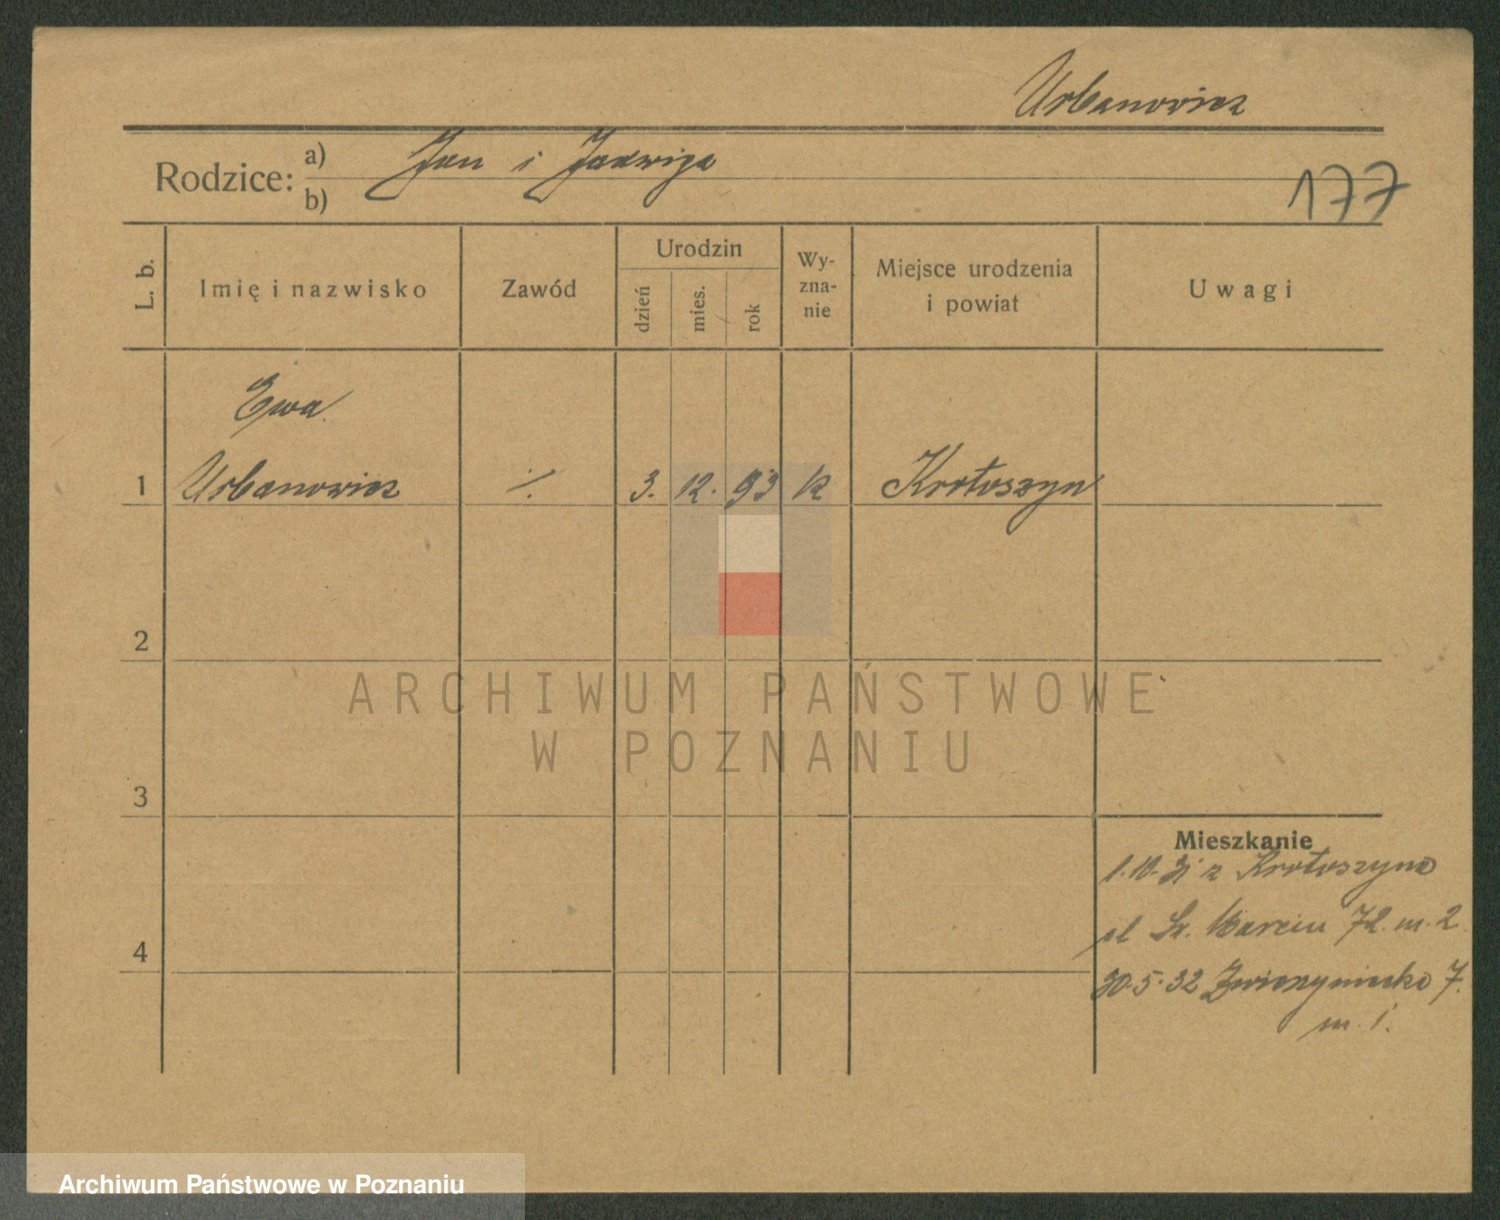 Urbanowicz
Rodzice: a) Jan i Jadwiga
b)
177
L. b. Imię i nazwisko Zawód Urodzin dzień mies. rok Wy-zna-nie Miejsce urodzenia i powiat Uwagi
Ewa
1 Urbanowicz ·/. 3. 12. 93 k Krotoszyn
2
ARCHIWUM PAŃSTWOWE
W POZNANIU
3
Mieszkanie
1.10.31 z Krotoszyna
pl Św. Marcin 72 m. 2
4
30.5.32 Zwierzyniecka 7.
m. 1.
Archiwum Państwowe w Poznaniu